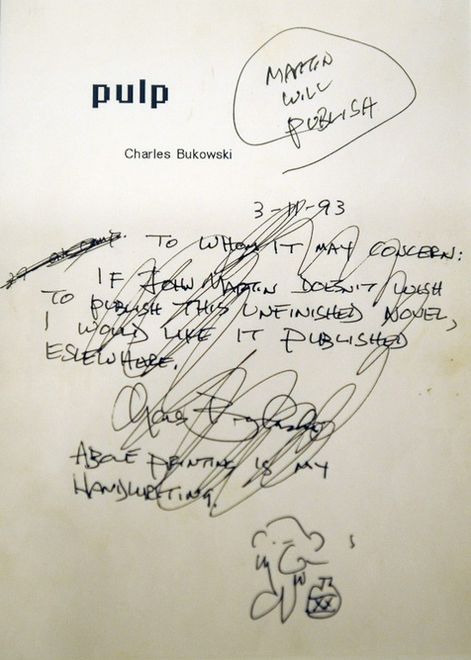 pulp
MARTIN
WILL
PUBLISH
Charles Bukowski
3-11-93
TO WHOM IT MAY CONCERN:
IF JOHN MARTIN DOESN'T WISH
TO PUBLISH THIS UNFINISHED NOVEL,
I WOULD LIKE IT PUBLISHED
ESLEWHERE.
Charles Bukowski
ABOVE PRINTING IS MY
HANDWRITING.
XX